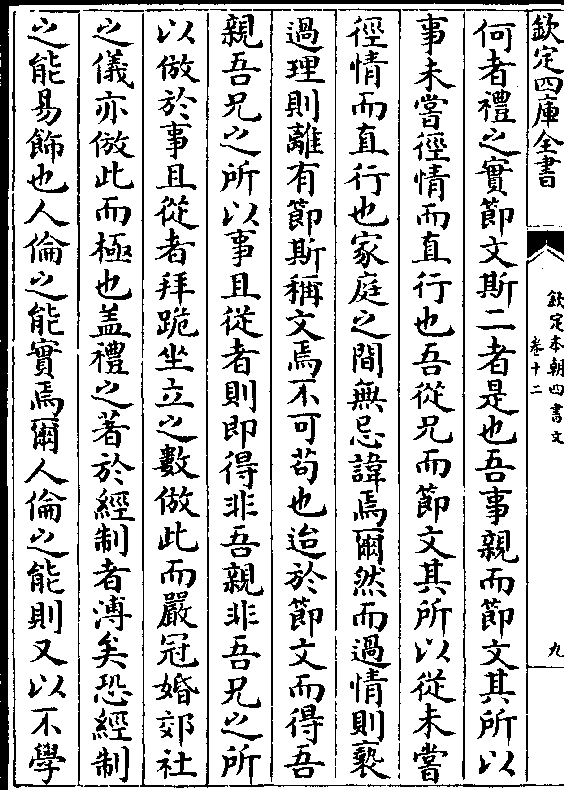 欽定四庫全書
欽定本朝四書文
卷十二
九
何者禮之實節文斯二者是也吾事親而節文其所以
事未嘗徑情而直行也吾從兄而節文其所以從未嘗
徑情而直行也家庭之間無忌諱焉爾然而過情則褻
過理則離有節斯稱文焉不可苟也迨於節文而得吾
親吾兄之所以事且從者則即得非吾親非吾兄之所
以倣於事且從者拜跪坐立之數倣此而嚴冠婚郊社
之儀亦倣此而極也盖禮之著於經制者溥矣恐經制
之能易飾也人倫之能實焉爾人倫之能則又以不學